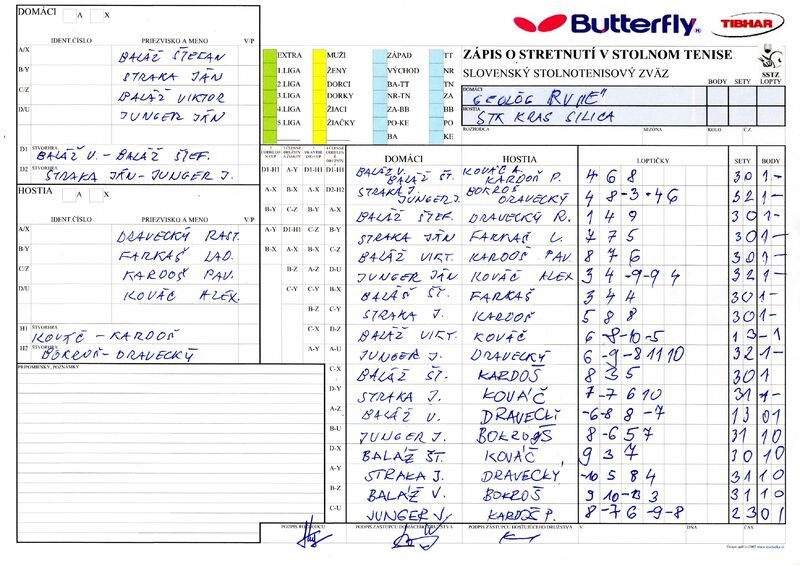 DOMÁCI A X
IDENT.ČÍSLO PRIEZVISKO A MENO V/P
A/X BALÁŽ ŠTEFAN
B/Y STRAKA JÁN
C/Z BALÁŽ VIKTOR
D/U JUNGER JÁN
D1 ŠTVORHRA BALÁŽ V. - BALÁŽ ŠTEF.
D2 ŠTVORHRA STRAKA JÁN - JUNGER J.
HOSTIA A X
IDENT.ČÍSLO PRIEZVISKO A MENO V/P
A/X DRAVECKÝ RAST.
B/Y FARKAŠ LAD.
C/Z KARDOŠ PAV.
D/U KOVÁČ ALEX.
H1 ŠTVORHRA KOVÁČ - KARDOŠ
H2 ŠTVORHRA BOKROŠ - DRAVECKÝ
PRIPOMIENKY, POZNÁMKY
Butterfly
TIBHAR
EXTRA MUŽI ZÁPAD TT
1.LIGA ŽENY VÝCHOD NR
2.LIGA DORCI BA-TT TN
3.LIGA DORKY NR-TN ZA
4.LIGA ŽIACI ZA-BB BB
5.LIGA ŽIAČKY PO-KE PO
BA KE
ZÁPIS O STRETNUTÍ V STOLNOM TENISE
SLOVENSKÝ STOLNOTENISOVÝ ZVÄZ
SSTZ
BODY SETY LOPTY
DOMÁCI „GEOLÓG RVNE"
HOSTIA STK KRAS SILICA
ROZHODCA SEZÓNA KOLO Č.Z.
DOMÁCI HOSTIA LOPTIČKY SETY BODY
D1-H1 A-Y D1-H1 D1-H1 BALÁŽ V. BALÁŽ ŠT. KOVÁČ A. KARDOŠ P. 4 6 8 3 0 1 -
A-X B-X A-X D2-H2 STRAKA J. JUNGER J. BOKROŠ DRAVECKÝ 4 8 -3 -4 6 3 2 1 -
B-Y C-Z B-Y A-X BALÁŽ ŠTEF. DRAVECKÝ R. 1 4 9 3 0 1 -
A-Y D1-H1 C-Z B-Y STRAKA JÁN FARKAŠ L. 7 7 5 3 0 1 -
B-X A-X B-X C-Z BALÁŽ VIKT. KARDOŠ PAV. 8 7 6 3 0 1 -
B-Z A-Z D-U JUNGER JÁN KOVÁČ ALEX 3 4 -9 -9 4 3 2 1 -
C-Y C-Y B-X BALÁŠ ŠT. FARKAŠ 3 4 4 3 0 1 -
B-Z C-Y STRAKA J. KARDOŠ 5 8 8 3 0 1 -
C-X D-Z BALÁŽ VIKT. KOVÁČ 6 -8 -10 -5 1 3 - 1
A-Y A-U JUNGER J. DRAVECKÝ 6 -9 -8 11 10 3 2 1 -
C-X BALÁŽ ŠT. KARDOŠ 8 3 5 3 0 1
D-Y STRAKA J. KOVÁČ 7 -7 6 10 3 1 1 -
A-Z BALÁŽ V. DRAVECKÝ -6 -8 8 -7 1 3 0 1
B-U JUNGER J. BOKROŠ 8 -6 5 7 3 1 1 0
D-X BALÁŽ ŠT. KOVÁČ 9 3 7 3 0 1 0
A-Y STRAKA J. DRAVECKÝ -10 5 8 4 3 1 1 0
B-Z BALÁŽ V. BOKROŠ 9 10 -13 3 3 1 1 0
C-U JUNGER J. KARDOŠ P. 8 -7 6 -9 -8 2 3 0 1
PODPIS ROZHODCU PODPIS ZÁSTUPCU DOMÁCEHO DRUŽSTVA PODPIS ZÁSTUPCU HOSŤUJÚCEHO DRUŽSTVA V DŇA ČAS